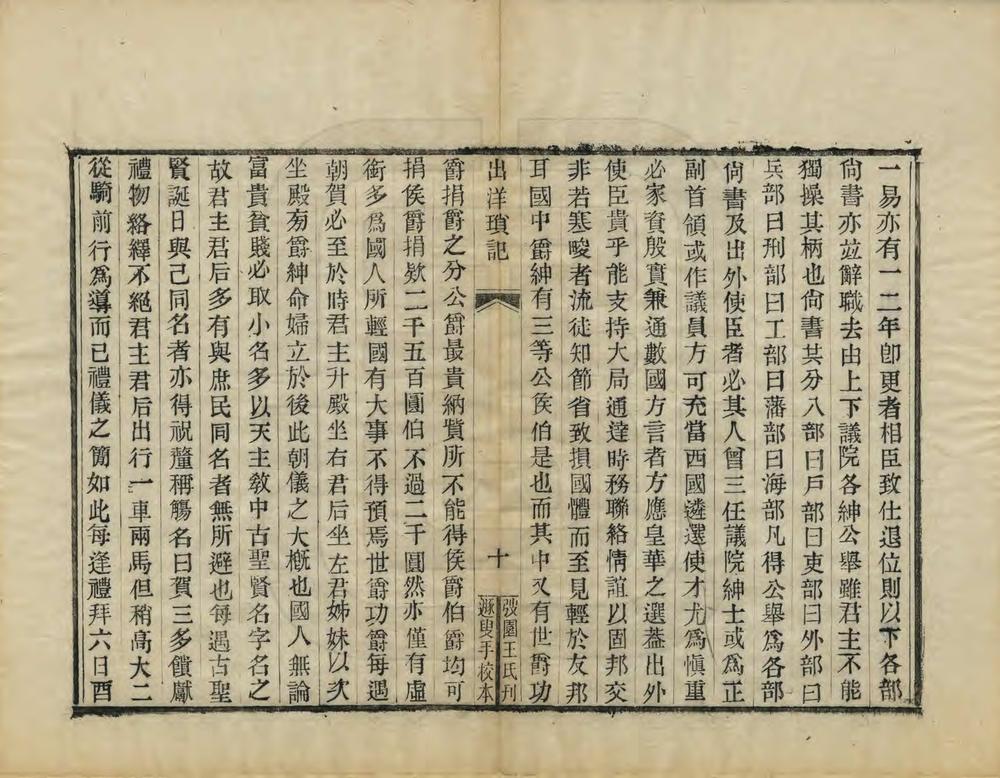 一易亦有一二年卽更者相臣致仕退位則以下各部
尙書亦竝辭職去由上下議院各紳公舉雖君主不能
獨操其柄也尙書其分八部曰戶部曰吏部曰外部曰
兵部曰刑部曰工部曰藩部曰海部凡得公舉爲各部
尙書及出外使臣者必其人曾三任議院紳士或爲正
副首領或作議員方可充當西國遴選使才尤爲愼重
必家資殷實兼通數國方言者方應皇華之選葢出外
使臣貴乎能支持大局通達時務聯絡情誼以固邦交
非若寒畯者流徒知節省致損國體而至見輕於友邦
耳國中爵紳有三等公侯伯是也而其中又有世爵功
出洋瑣記
十
弢園王氏刊
遯叟手校本
爵捐爵之分公爵最貴納貲所不能得侯爵伯爵均可
捐侯爵捐欵二千五百圓伯不過二千圓然亦僅有虛
銜多爲國人所輕國有大事不得預焉世爵功爵每遇
朝賀必至於時君主升殿坐右君后坐左君姊妹以次
坐殿旁爵紳命婦立於後此朝儀之大槪也國人無論
富貴貧賤必取小名多以天主敎中古聖賢名字名之
故君主君后多有與庶民同名者無所避也每遇古聖
賢誕日與己同名者亦得祝釐稱觴名曰賀三多饋獻
禮物絡繹不絕君主君后出行一車兩馬但稍高大二
從騎前行爲導而已禮儀之簡如此每逢禮拜六日酉